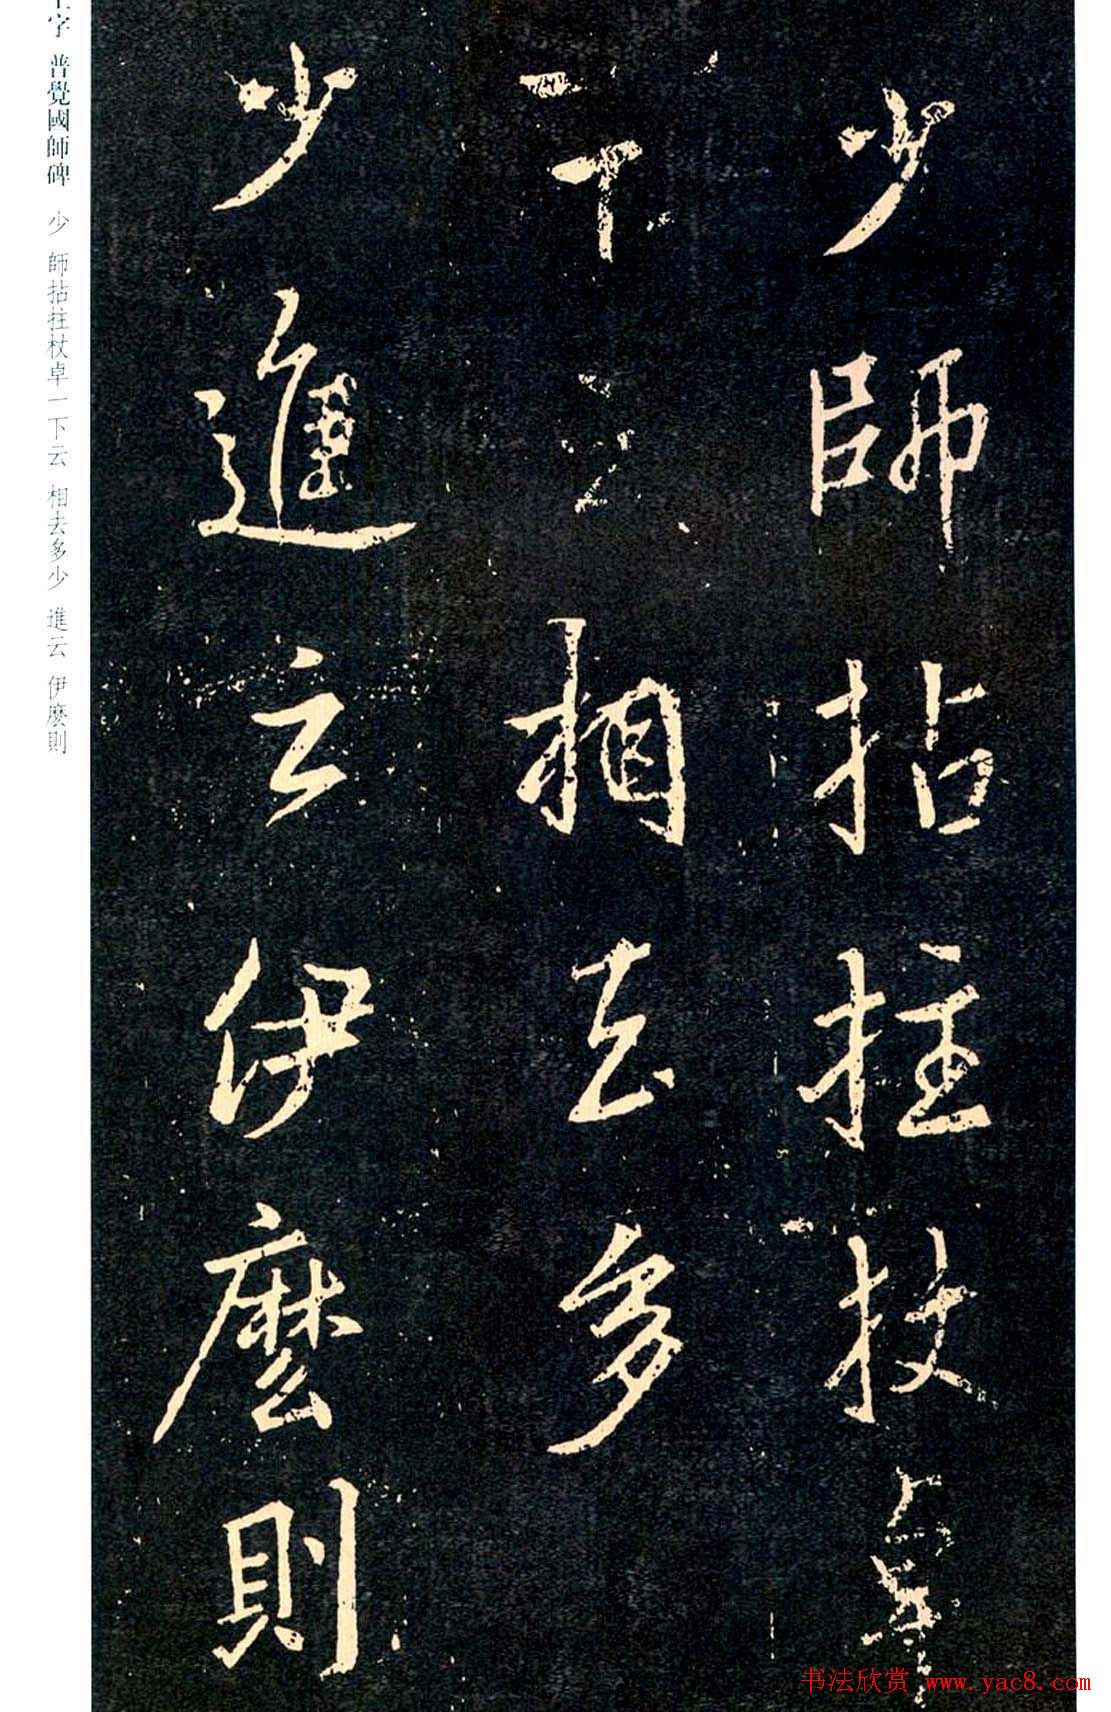 少師拈拄杖卓
一下云相去多
少進云伊麽則
字 普覺國師碑 少 師拈拄杖卓一下云 相去多少 進云 伊麽則
书法欣赏 www.yac8.com